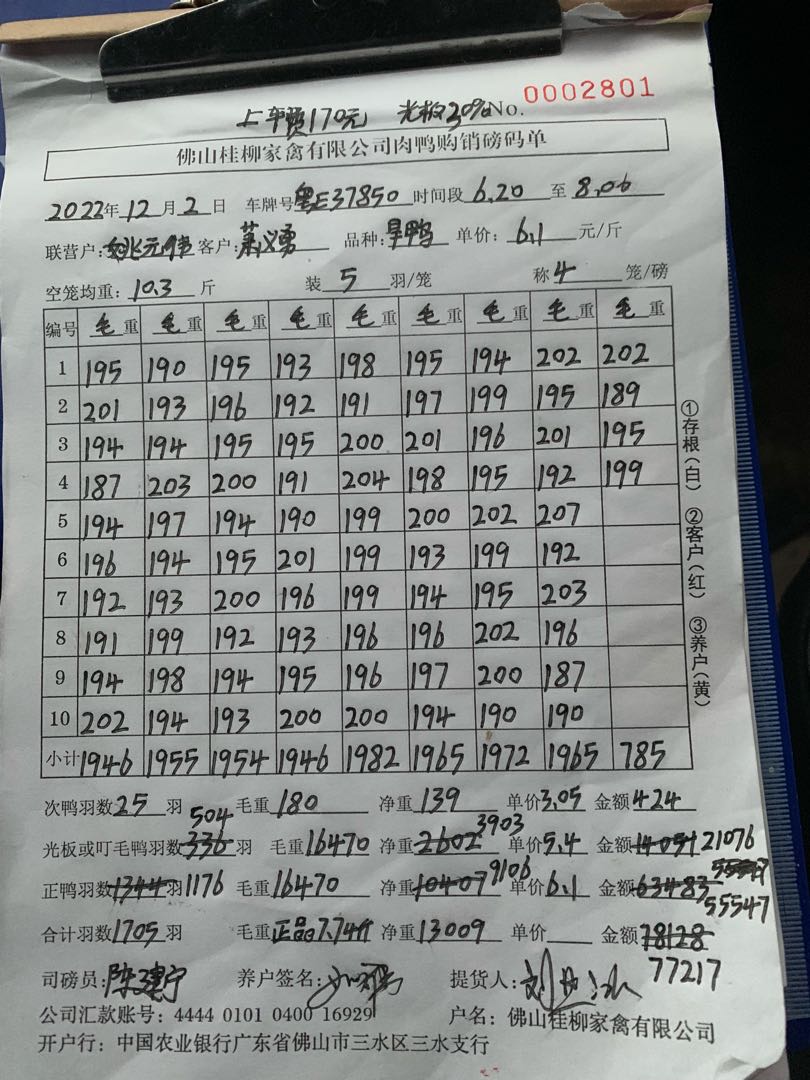 上车费170元 光板30% No. 0002801
佛山桂柳家禽有限公司肉鸭购销磅码单
2022年12月2日 车牌号粤E37850 时间段6.20至8.06
联营户:姚元伟 客户:萧义勇 品种:旱鸭 单价:6.1元/斤
空笼均重:10.3斤 装5羽/笼 称4笼/磅
编号 毛重 毛重 毛重 毛重 毛重 毛重 毛重 毛重 毛重
1 195 190 195 193 198 195 194 202 202
2 201 193 196 192 191 197 199 195 189
3 194 194 195 195 200 201 196 201 195
4 187 203 200 191 204 198 195 192 199
5 194 197 194 190 199 200 202 207
6 196 194 195 201 199 193 199 192
7 192 193 200 196 199 194 195 203
8 191 199 192 193 196 196 202 196
9 194 198 194 195 196 197 200 187
10 202 194 193 200 200 194 190 190
小计 1946 1955 1954 1946 1982 1965 1972 1965 785
①存根(白) ②客户(红) ③养户(黄)
次鸭羽数25羽 毛重180 净重139 单价3.05 金额424
504 3903
光板或叮毛鸭羽数336羽 毛重16470 净重2602 单价5.4 金额14051 21076
9106 55547
正鸭羽数1344羽1176 毛重16470 净重10407 单价6.1 金额63483
55547
合计羽数1705羽 毛重正品7.74斤 净重13009 单价 金额78128
77217
司磅员:陈建宁 养户签名: 提货人:
公司汇款账号:4444 0101 0400 16929 户名:佛山桂柳家禽有限公司
开户行:中国农业银行广东省佛山市三水区三水支行